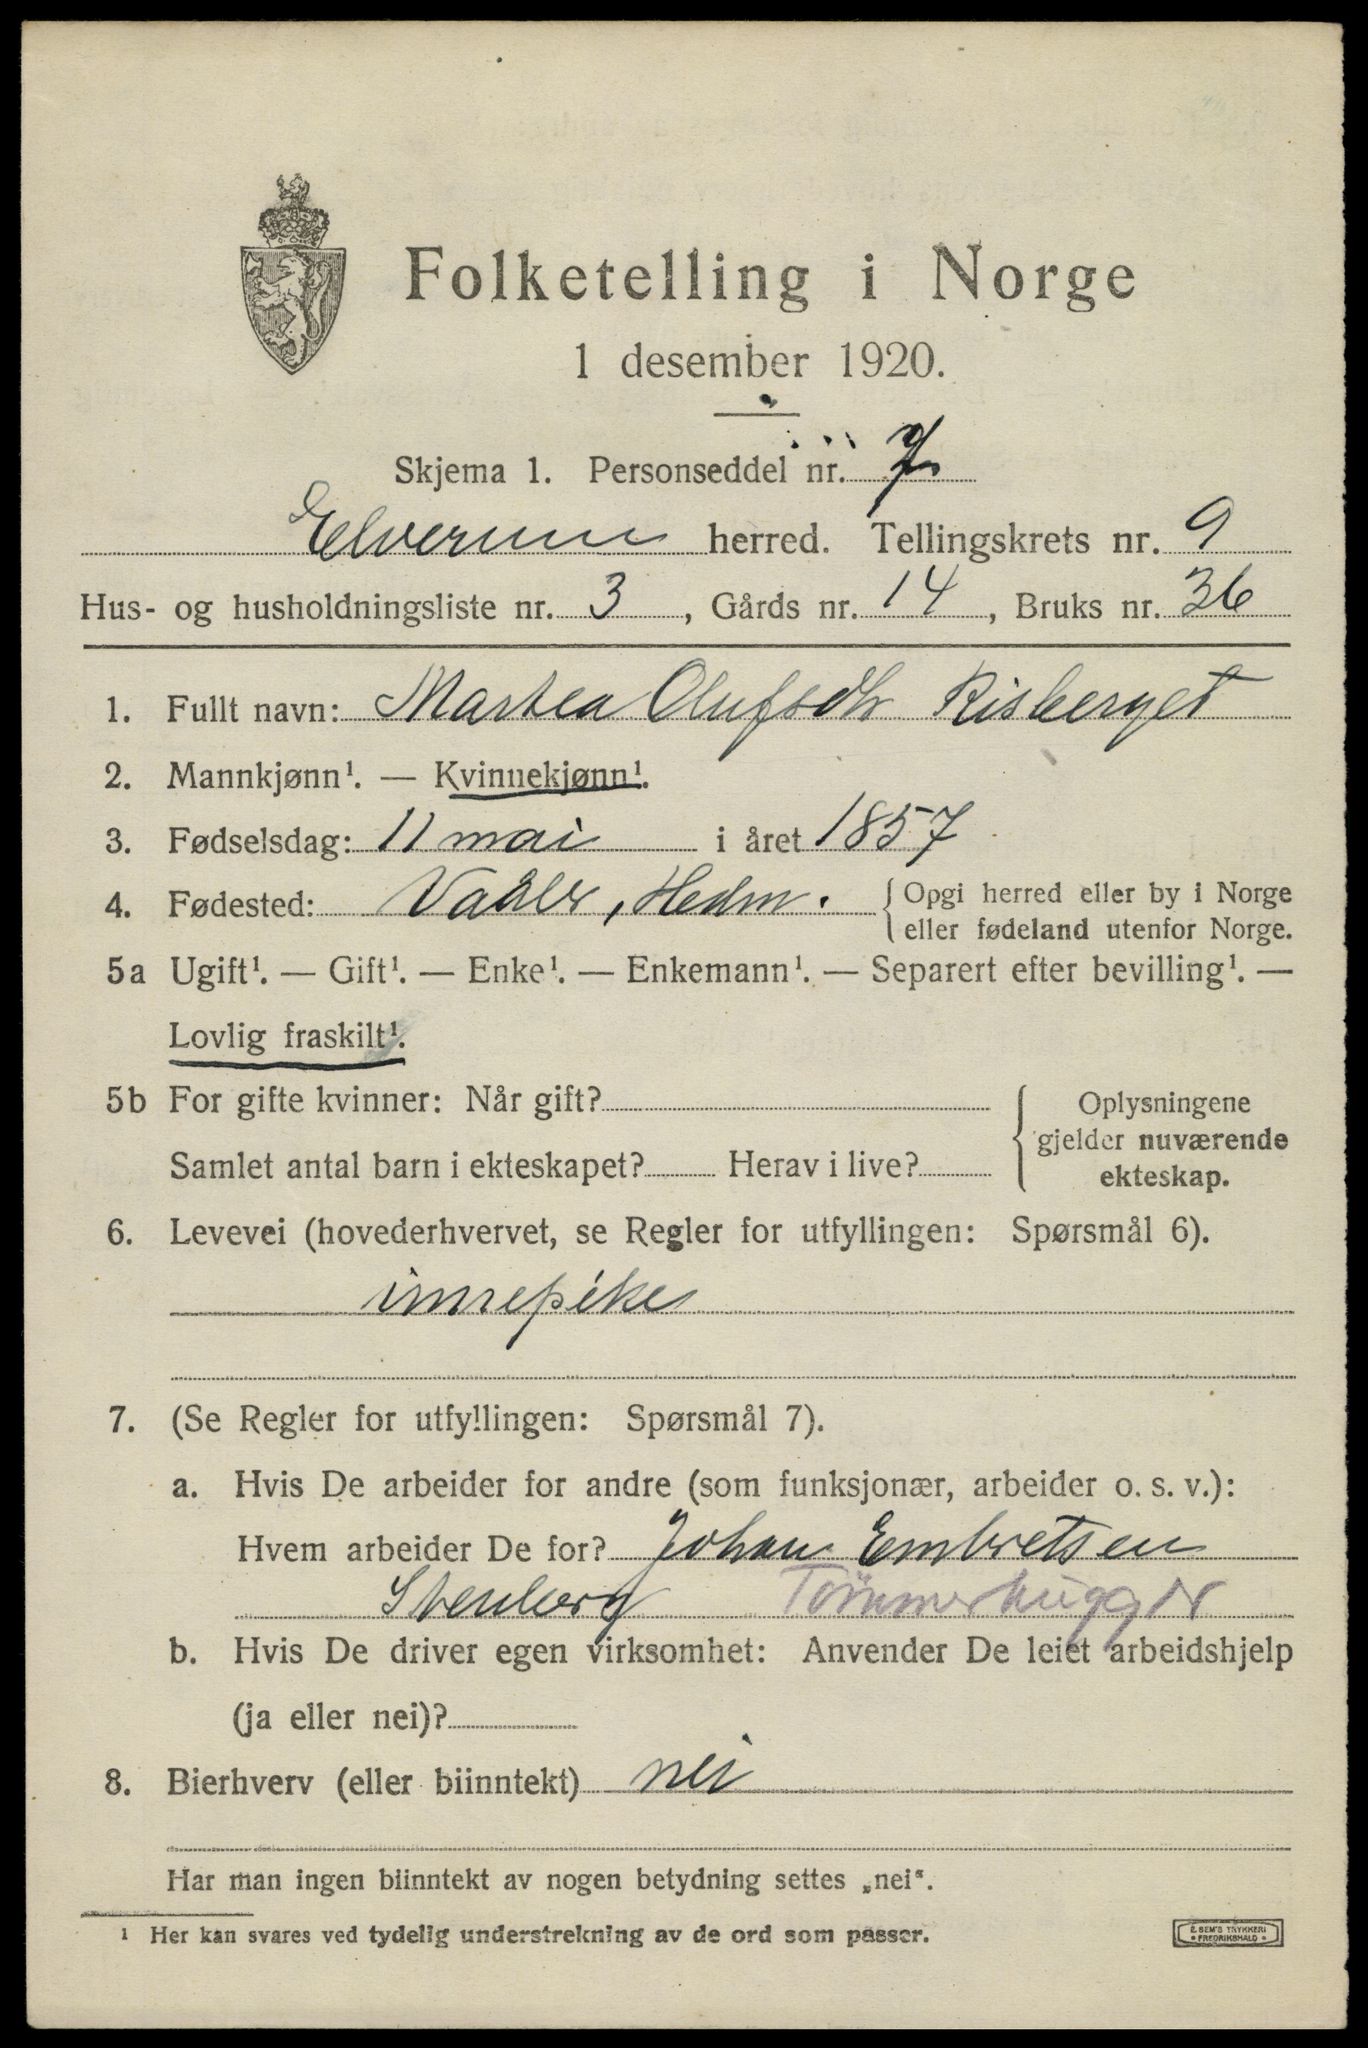 Folketelling i Norge
1 desember 1920.
Skjema 1. Personseddel nr. 7
Elverum herred. Tellingskrets nr. 9
Hus- og husholdningsliste nr. 3, Gårds nr. 14, Bruks nr. 36
1. Fullt navn: Martea Olufsdtr Risberget
2. Mannkjønn¹. — Kvinnekjønn¹.
3. Fødselsdag: 11 mai i året 1857
4. Fødested: Vaaler, Hedm. { Opgi herred eller by i Norge
eller fødeland utenfor Norge.
5a Ugift¹. — Gift¹. — Enke¹. — Enkemann¹. — Separert efter bevilling¹. —
Lovlig fraskilt¹.
5b For gifte kvinner: Når gift?
Samlet antal barn i ekteskapet? Herav i live?
{ Oplysningene
gjelder nuværende
ekteskap.
6. Levevei (hovederhvervet, se Regler for utfyllingen: Spørsmål 6).
innepike
7. (Se Regler for utfyllingen: Spørsmål 7).
a. Hvis De arbeider for andre (som funksjonær, arbeider o. s. v.):
Hvem arbeider De for? Johan Embretsen
Stenberg Tømmerhugger
b. Hvis De driver egen virksomhet: Anvender De leiet arbeidshjelp
(ja eller nei)?
8. Bierhverv (eller biinntekt) nei
Har man ingen biinntekt av nogen betydning settes „nei“.
¹ Her kan svares ved tydelig understrekning av de ord som passer.
E. SEM'S TRYKKERI
• FREDRIKSHALD •